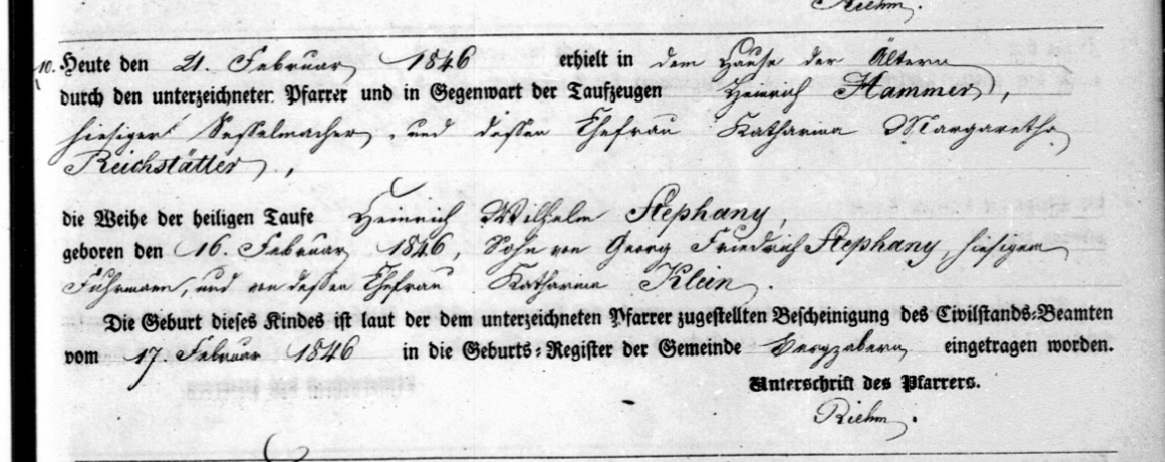 Riehm.
10. Heute den 21. Februar 1846 erhielt in dem Hause der Ältern
durch den unterzeichneter Pfarrer und in Gegenwart der Taufzeugen Heinrich Hammer,
hiesiger Sesselmacher, und dessen Ehefrau Katharina Margaretha
Reichstätter,
die Weihe der heiligen Taufe Heinrich Wilhelm Stephany,
geboren den 16. Februar 1846, Sohn von Georg Friedrich Stephany, hiesigem
Fuhrmann, und von dessen Ehefrau Katharina Klein.
Die Geburt dieses Kindes ist laut der dem unterzeichneten Pfarrer zugestellten Bescheinigung des Civilstands-Beamten
vom 17. Februar 1846 in die Geburts-Register der Gemeinde Bergzabern eingetragen worden.
Unterschrift des Pfarrers.
Riehm.